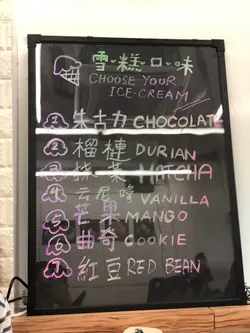 雪·糕·口·味
CHOOSE YOUR
ICE-CREAM
1 朱古力 CHOCOLATE
2 榴槤 DURIAN
3 抹茶 MATCHA
4 云尼嗱 VANILLA
5 芒果 MANGO
6 曲奇 COOKIE
7 紅豆 RED BEAN